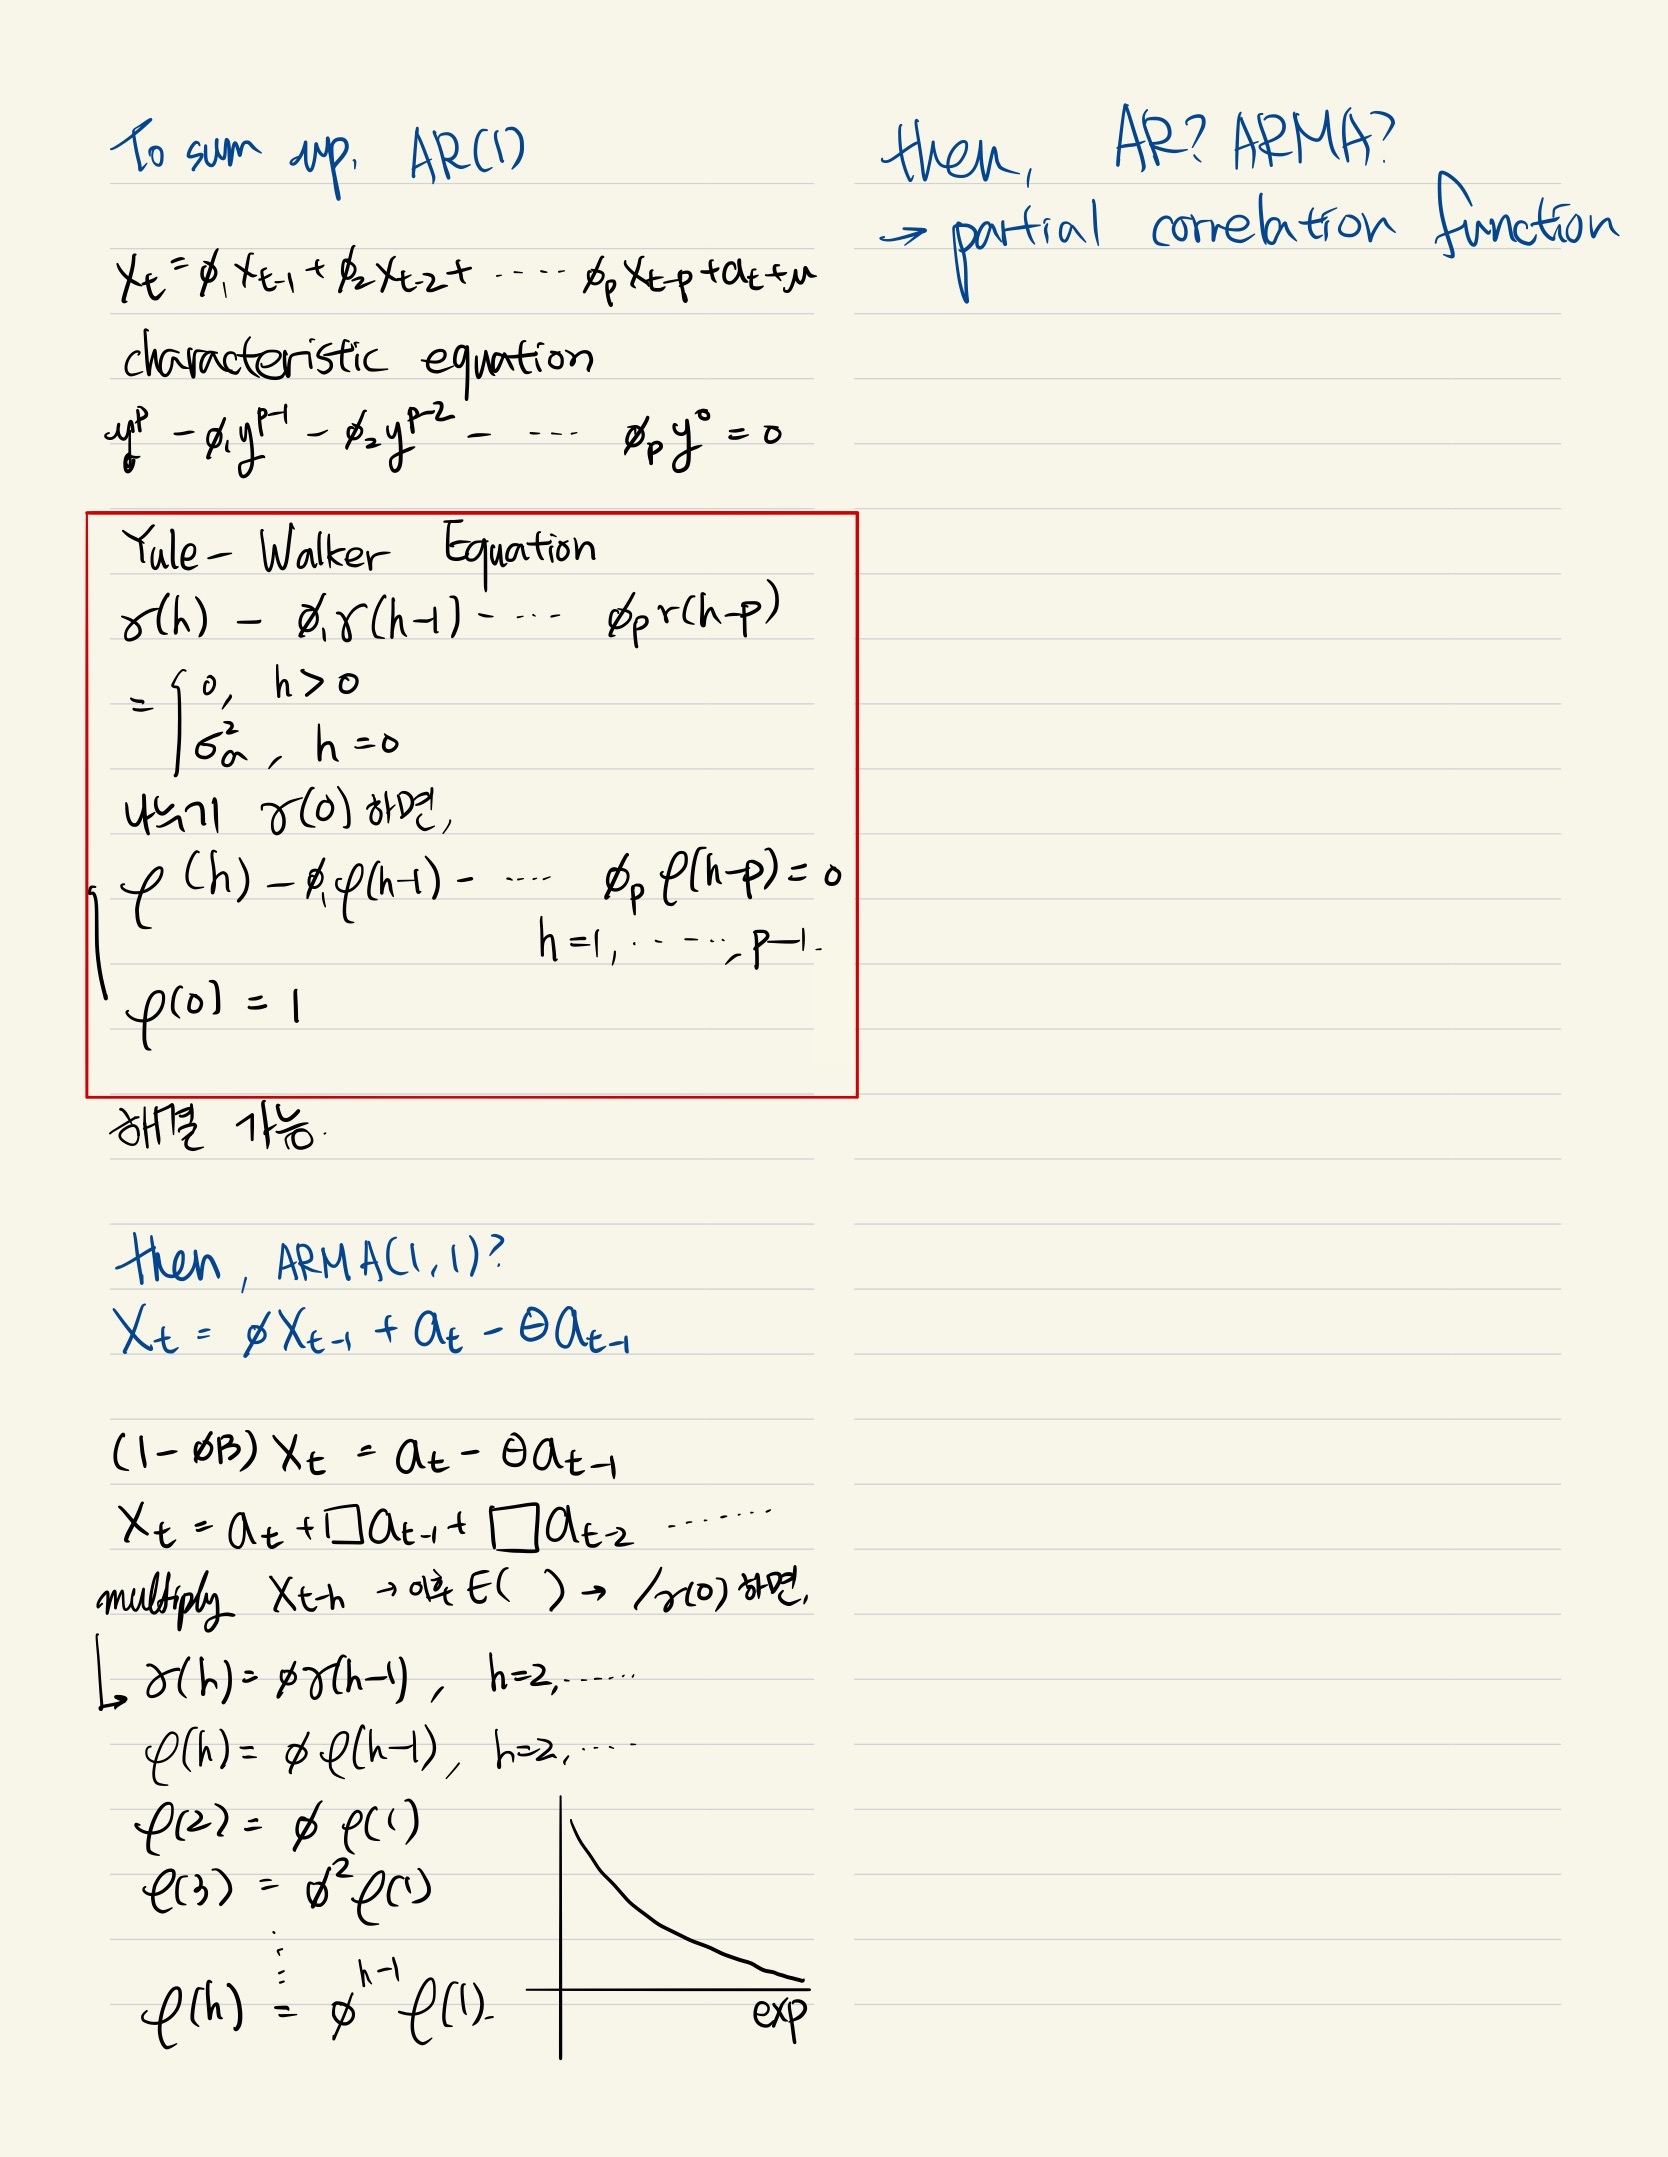 To sum up, AR(1)
X_t = ϕ_1 X_{t-1} + ϕ_2 X_{t-2} + ····· ϕ_p X_{t-p} + a_t + μ
characteristic equation
y^p - ϕ_1 y^{p-1} - ϕ_2 y^{p-2} - ···· ϕ_p y^0 = 0
Yule - Walker Equation
γ(h) - ϕ_1 γ(h-1) - ···· ϕ_p r(h-p)
= { 0, h > 0
σ_a^2, h = 0
나누기 γ(0) 하면,
ρ(h) - ϕ_1 ρ(h-1) - ···· ϕ_p ρ(h-p) = 0
h = 1, ·····, p-1.
ρ(0) = 1
해결 가능.
then, ARMA(1,1)?
X_t = ϕX_{t-1} + a_t - θa_{t-1}
(1 - ϕB) X_t = a_t - θa_{t-1}
X_t = a_t + □a_{t-1} + □a_{t-2} ······
multiply X_{t-h} → 이후 E( ) → /γ(0) 하면,
↳ γ(h) = ϕγ(h-1), h=2,······
ρ(h) = ϕρ(h-1), h=2,·····
ρ(2) = ϕ ρ(1)
ρ(3) = ϕ^2 ρ(1)
⋮
ρ(h) = ϕ^{h-1} ρ(1).
exp
then, AR? ARMA?
→ partial correlation function